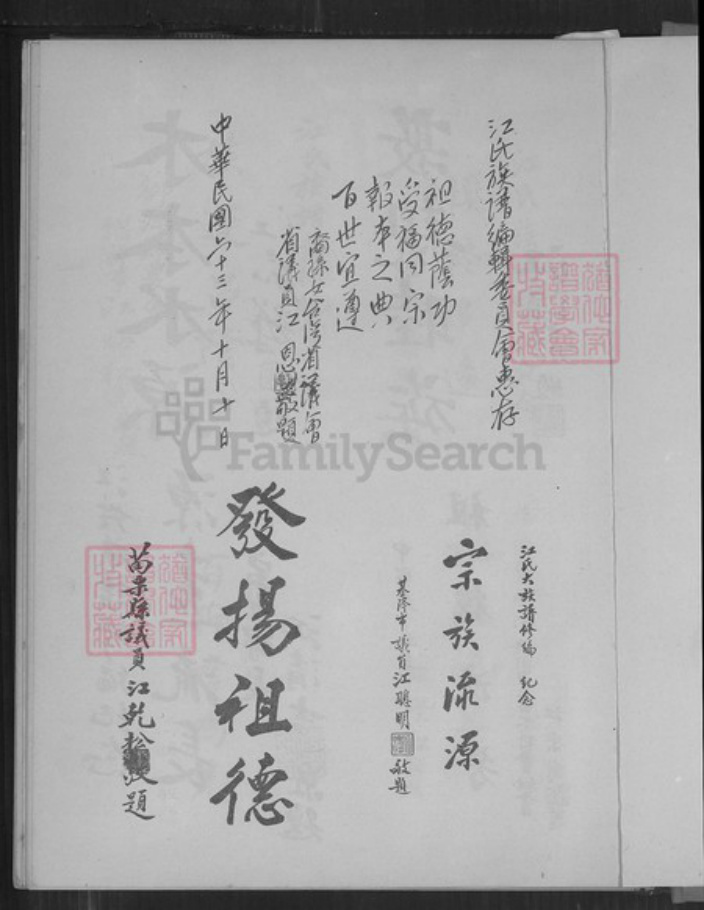 江氏族譜編輯委員會惠存
祖德蔭功
受福同宗
報本之典
百世宜遵
裔孫女台灣省議會
省議員江恩敬題
中華民國六十三年十月十日
江氏大族譜修編 紀念
宗族流源
基隆市議員江聰明 敬題
發揚祖德
苗栗縣議員江乾松敬題
FamilySearch